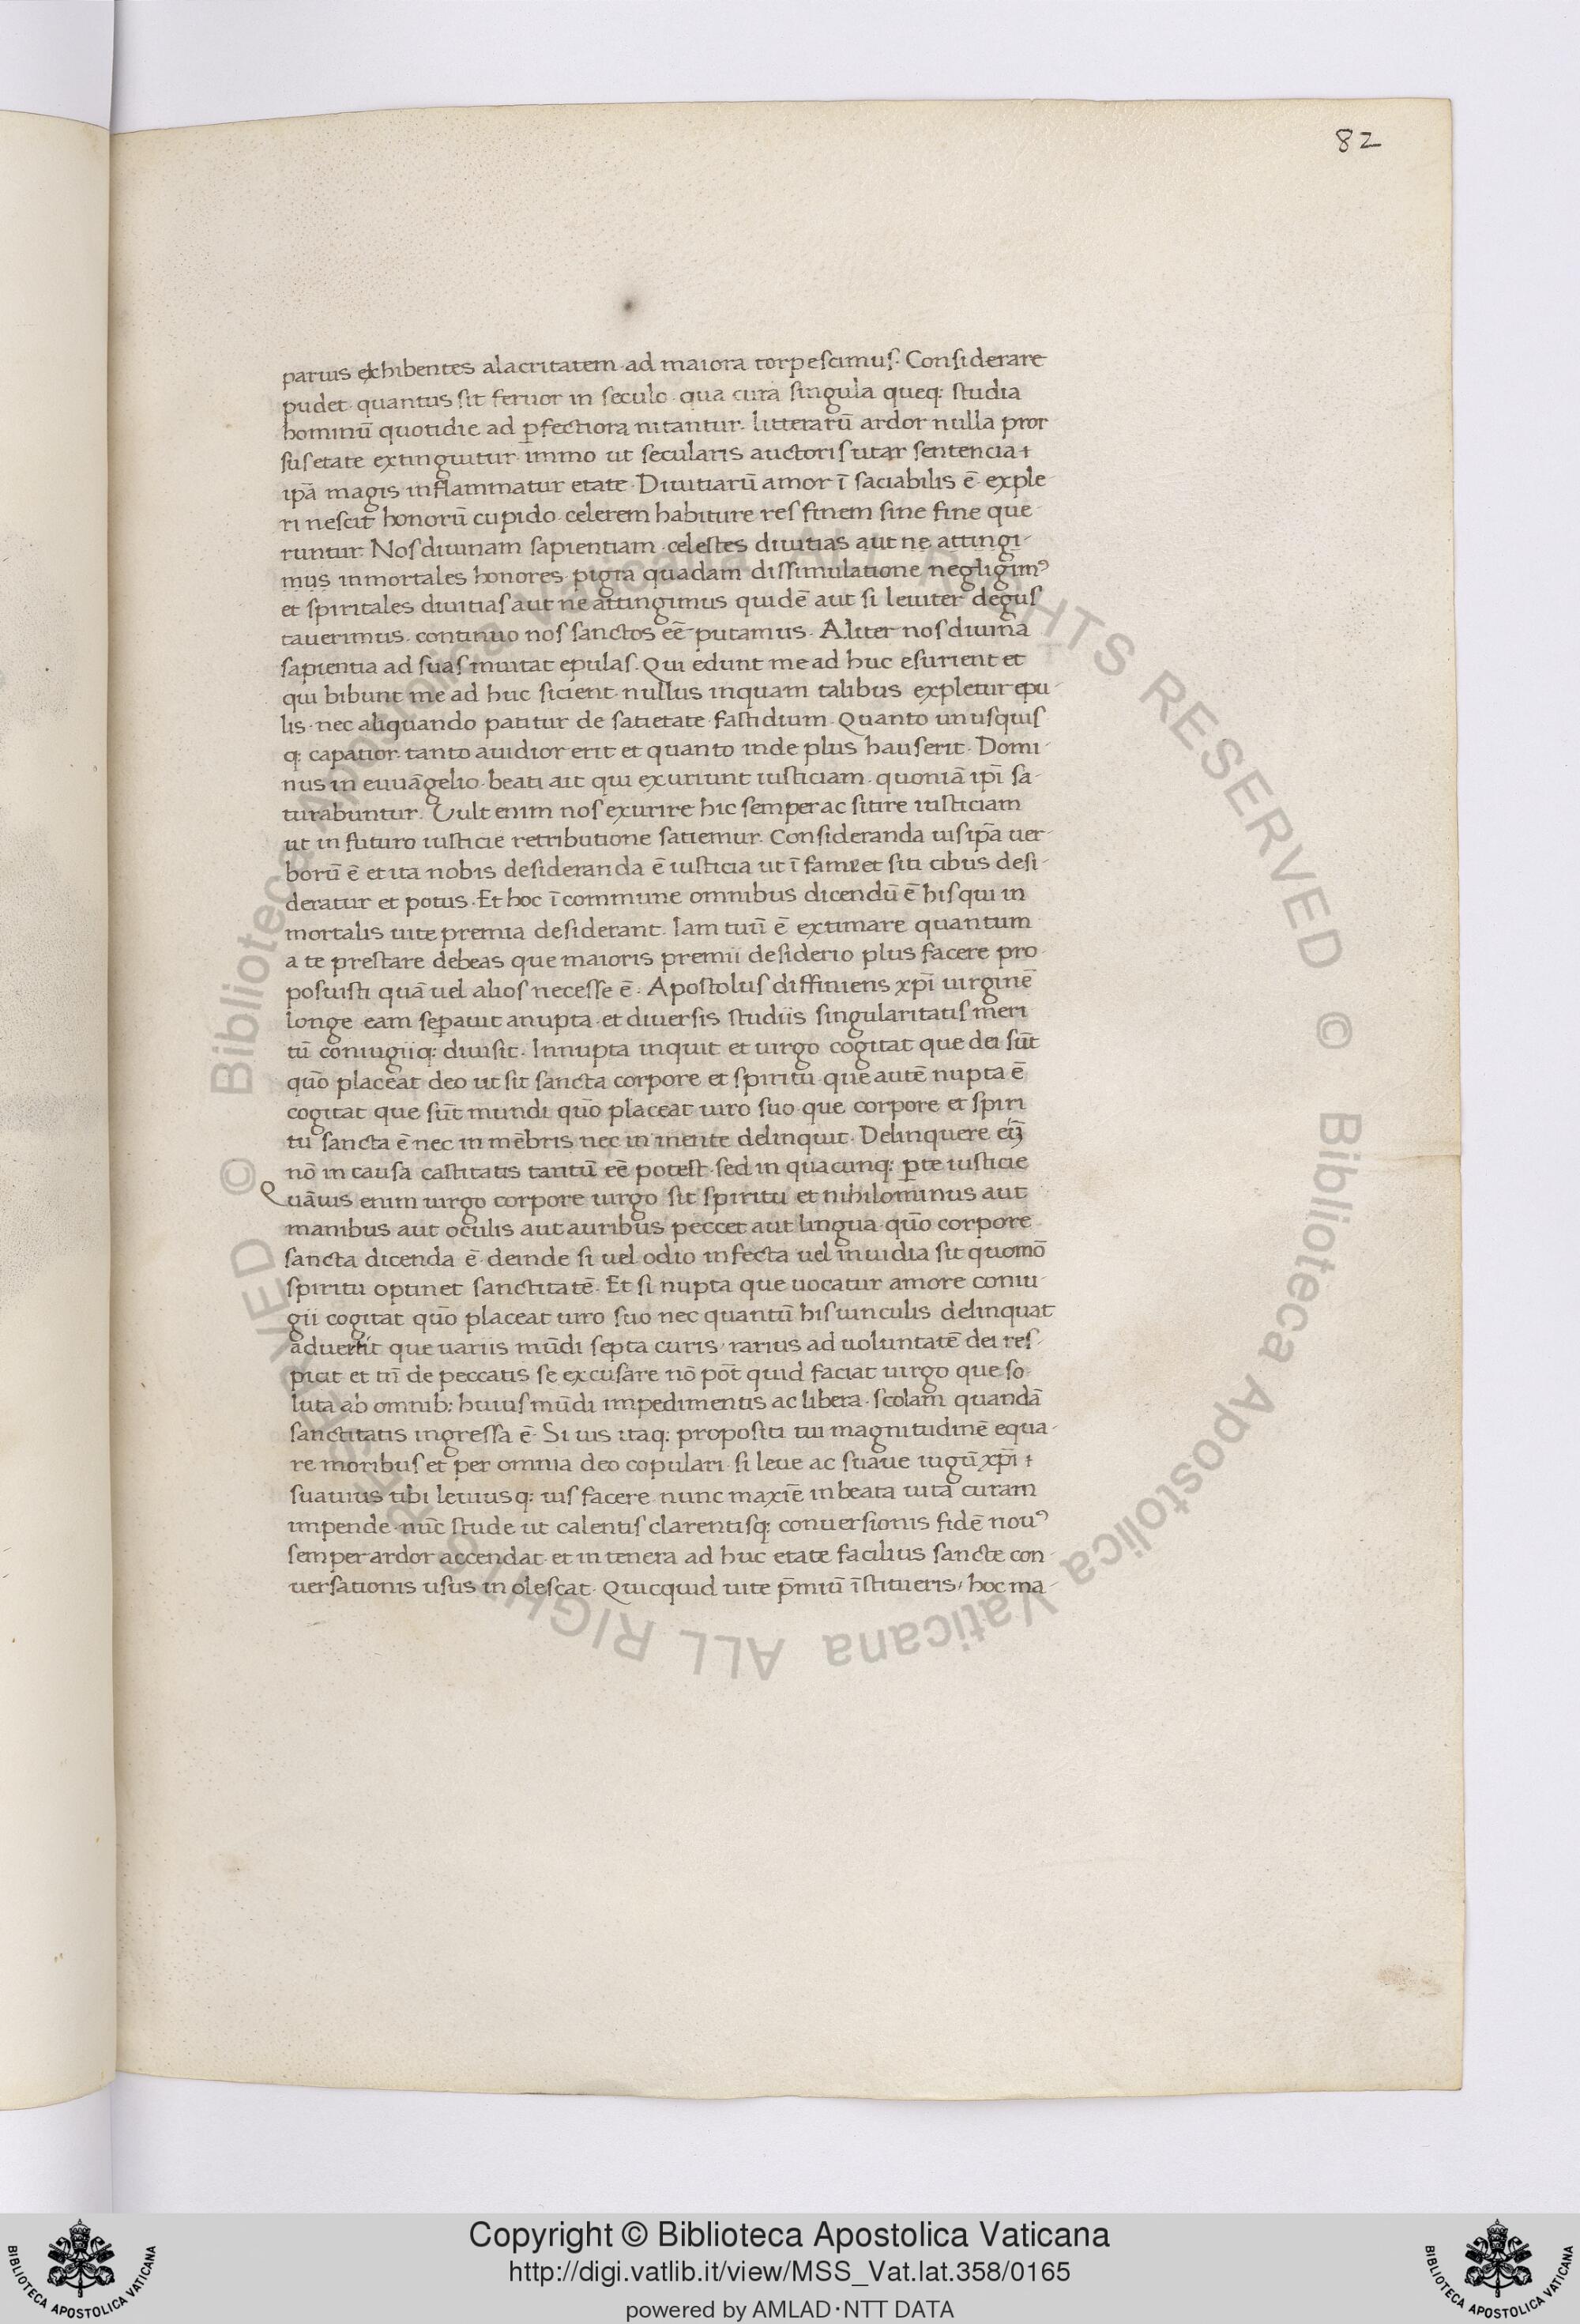 82
paruis exhibentes alacritatem ad maiora torpescimus. Considerare
pudet quantus sit feruor in seculo. qua cura singula queq; studia
hominū quotidie ad ꝑfectiora nitantur. litterarū ardor nulla pror
sus etate extinguitur immo ut secularis auctoris utar sentencia ⁊
ipā magis inflammatur etate. Diuitiarū amor ī saciabilis ē exple
ri nescit honorū cupido. celerem habiture res finem sine fine que
runtur. Nos diuinam sapientiam. celestes diuitias aut ne attingi-
mus inmortales honores pigra quadam dissimulatione negligimꝰ
et spiritales diuitias aut ne attingimus quidē aut si leuiter degus
tauerimus. continuo nos sanctos eē putamus. Aliter nos diuina
sapientia ad suas inuitat epulas. Qui edunt me ad huc esurient et
qui bibunt me ad huc sicient nullus inquam talibus expletur epu-
lis. nec aliquando patitur de satietate fastidium. Quanto unusquis
q; capatior. tanto auidior erit et quanto inde plus hauserit. Domi-
nus in euuāgelio. beati ait qui exuriunt iusticiam. quoniā ipī sa-
turabuntur. Uult enim nos exurire hic semper ac sitire iusticiam
ut in futuro iusticie retributione satiemur. Consideranda uis ipā uer-
borū ē et ita nobis desideranda ē iusticia ut ī fame et siti cibus desi-
deratur et potus. Et hoc ī commune omnibus dicendū ē his qui in
mortalis uite premia desiderant. Iam tuū ē extimare quantum
a te prestare debeas que maioris premii desiderio plus facere pro
posuisti quā uel alios necesse ē. Apostolus diffiniens xpī uirginē
longe eam seꝑauit anupta. et diuersis studiis singularitatis meri
tū coniugiiq; diuisit. Innupta inquit et uirgo cogitat que dei sūt
quō placeat deo ut sit sancta corpore et spiritu que autē nupta ē
cogitat que sūt mundi quō placeat uiro suo que corpore et spiri
tu sancta ē nec in mēbris nec in mente delinquit. Delinquere
nō in causa castitatis tantū eē potest. sed in quacunq; ꝑte iusticie
Quāuis enim uirgo corpore uirgo sit spiritu et nihilominus aut
manibus aut oculis aut auribus peccet aut lingua quō corpore
sancta dicenda ē. deinde si uel odio infecta uel inuidia sit quomō
spiritu optinet sanctitatē. Et si nupta que uocatur amore coniu-
gii cogitat quō placeat uiro suo nec quantū his uinculis delinquat
aduertit que uariis mūdi septa curis, rarius ad uoluntatē dei res-
picit et tn̄ de peccatis se excusare nō pōt quid faciat uirgo que so
luta ab omnib; huius mūdi impedimentis ac libera. scolam quandā
sanctitatis ingressa ē. Si uis itaq; propositi tui magnitudinē equa-
re moribus et per omnia deo copulari. si leue ac suaue iugū xpī ⁊
suauius tibi leuiusq; uis facere. nunc maxīe in beata uita curam
impende. nūc stude ut calentis clarentisq; conuersionis fidē nouꝰ
semper ardor accendat. et in tenera ad huc etate facilius sancte con
uersationis usus inolescat. Quicquid uite p̄miū īstitueris, hoc ma-
© Biblioteca Apostolica Vaticana ALL RIGHTS RESERVED © Biblioteca Apostolica Vaticana ALL RIGHTS RESERVED
BIBLIOTECA APOSTOLICA VATICANA
Copyright © Biblioteca Apostolica Vaticana
http://digi.vatlib.it/view/MSS_Vat.lat.358/0165
powered by AMLAD·NTT DATA
BIBLIOTECA APOSTOLICA VATICANA